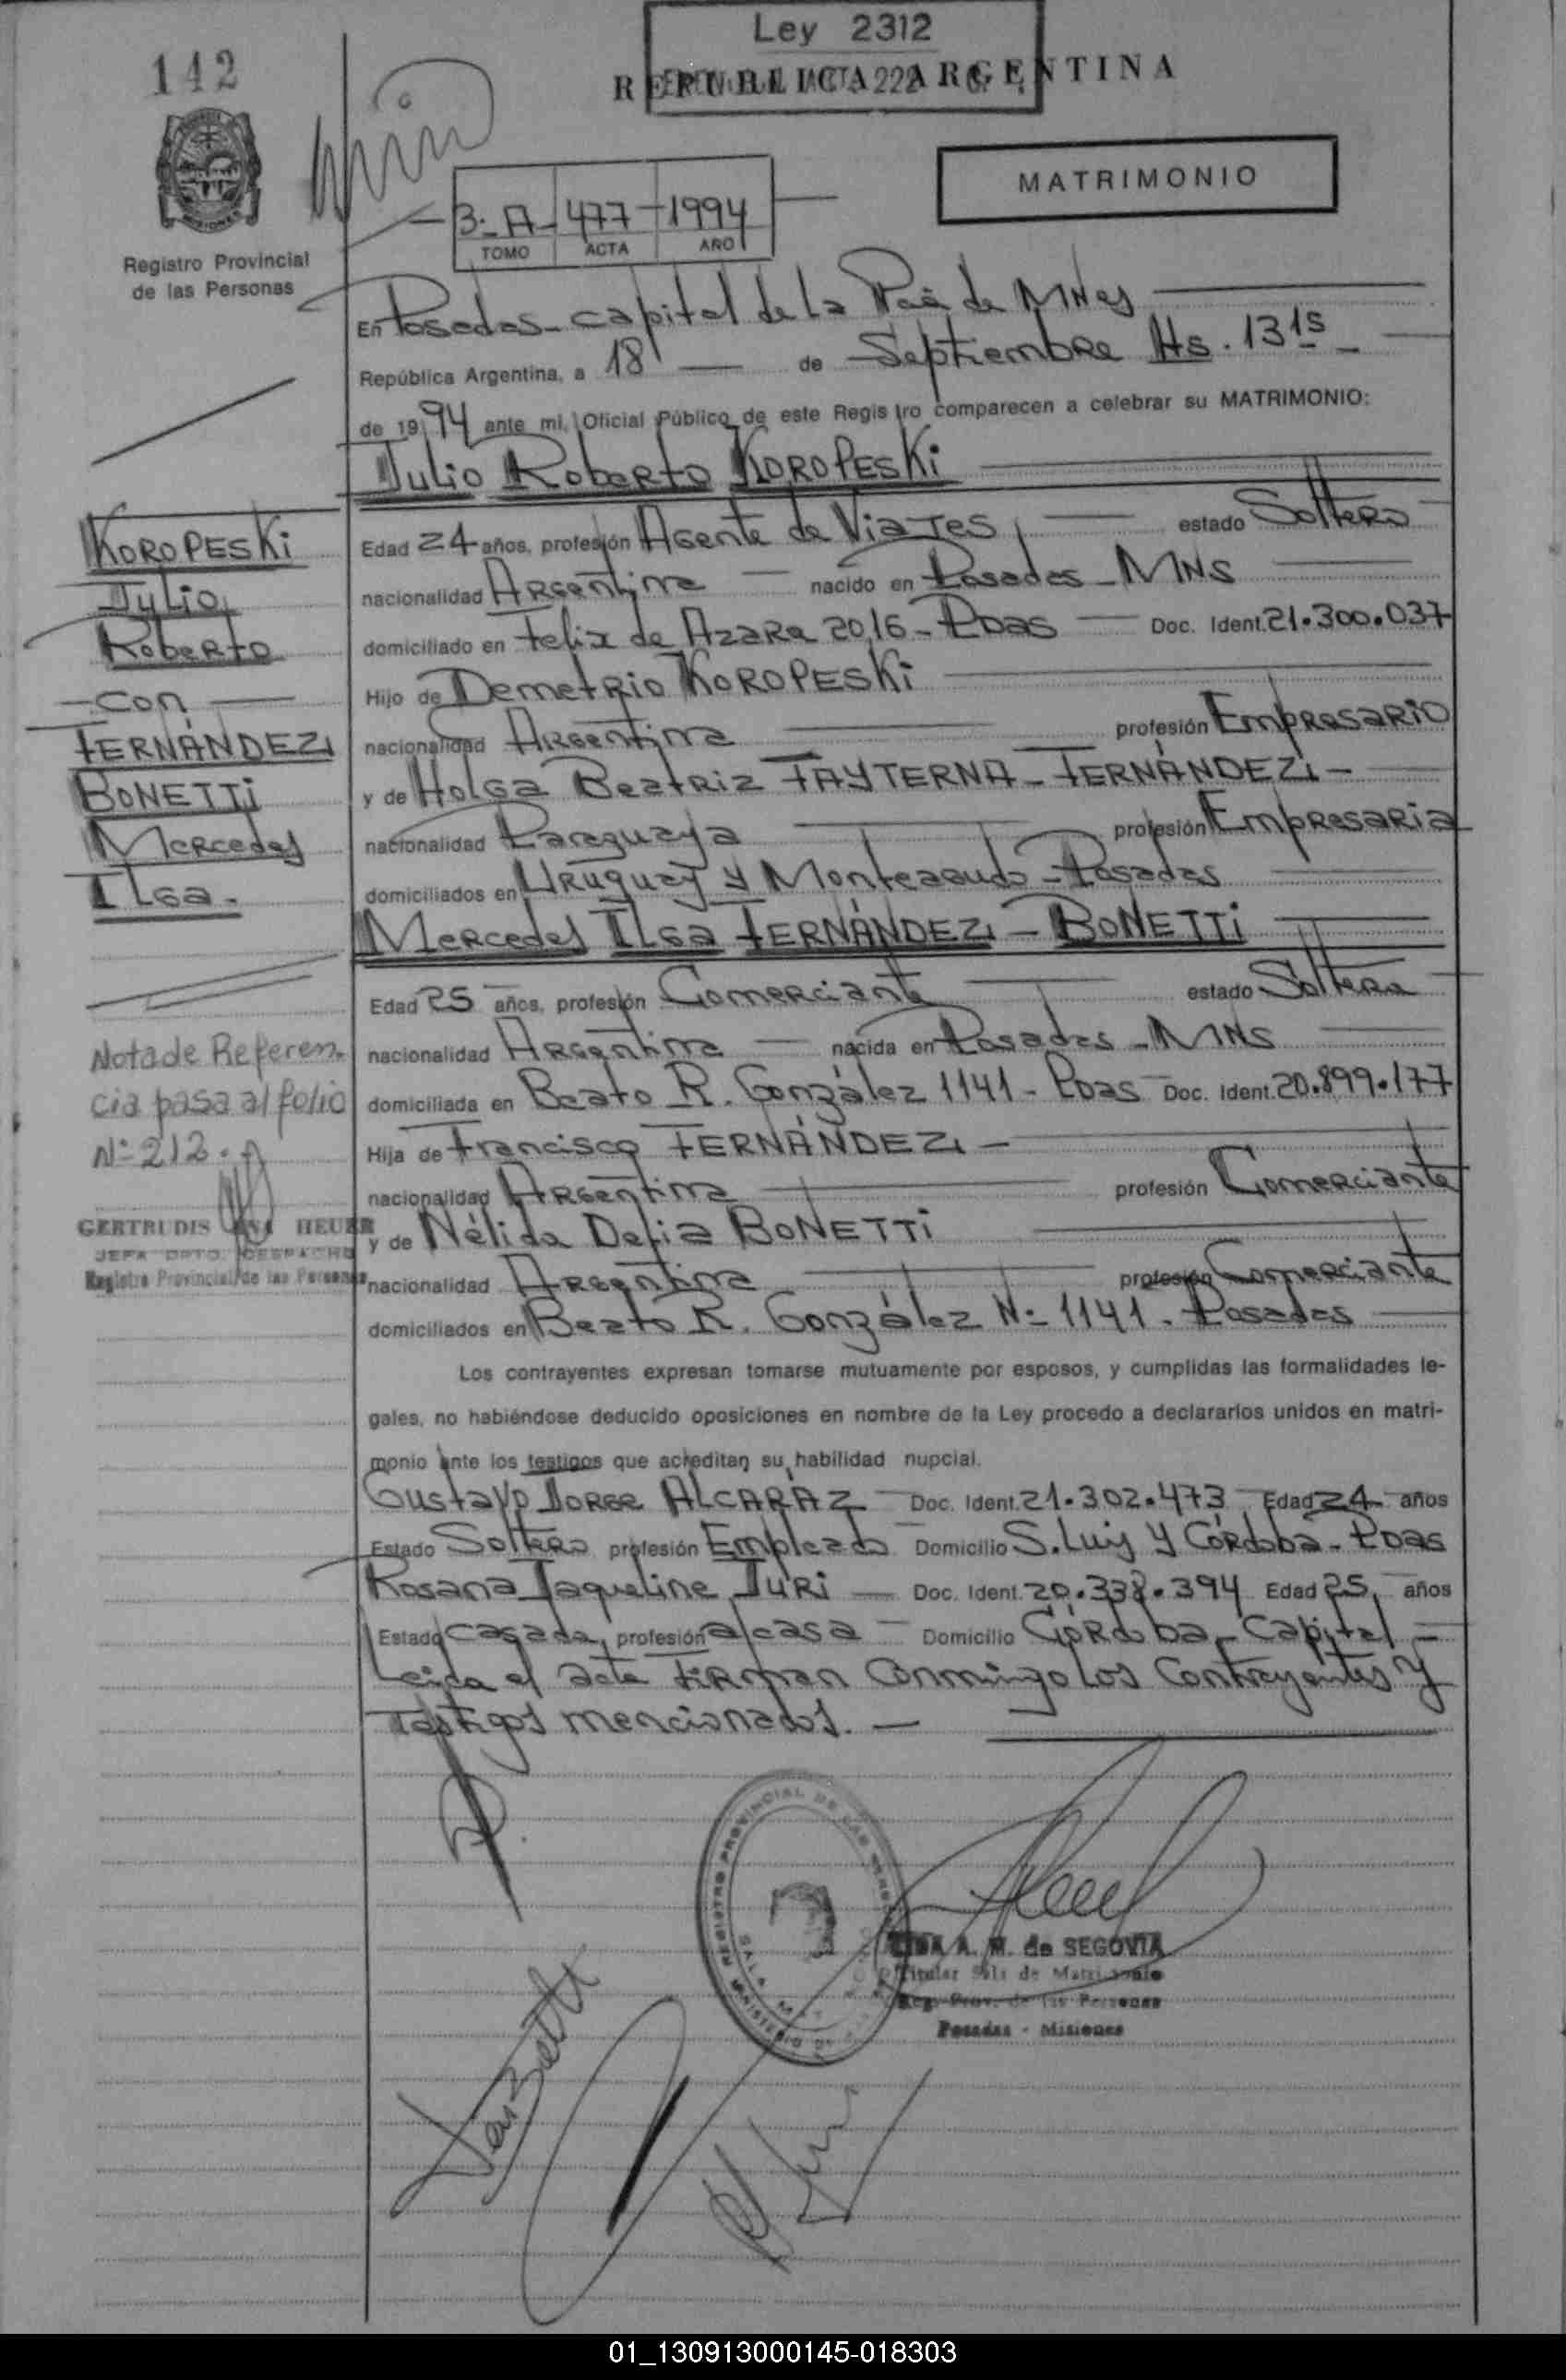 Ley 2312
142
REPUBLICA ARGENTINA
MATRIMONIO
3-A- 477 - 1994
TOMO ACTA AÑO
Registro Provincial
de las Personas
En Posadas - capital de la Pcia de MNes
República Argentina, a 18 — de Septiembre Hs. 13 15
de 1994 ante mi, Oficial Público de este Registro comparecen a celebrar su MATRIMONIO:
Julio Roberto KOROPESKi
Edad 24 años, profesión Agente de Viajes, estado Soltero
nacionalidad Argentina — nacido en Posadas - MNS
domiciliado en Felix de Azara 2016 - Pdas — Doc. Ident. 21.300.037
Hijo de Demetrio KOROPESKi
nacionalidad Argentina profesión Empresario
y de Holga Beatriz FAYTERNA - FERNÁNDEZ -
nacionalidad Paraguaya profesión Empresaria
domiciliados en Uruguay y Monteagudo - Posadas
Mercedes Ilga FERNÁNDEZ - BONETTi
Edad 25 años, profesión Comerciante estado Soltera
nacionalidad Argentina — nacida en Posadas - MNS
domiciliada en Beato R. González 1141 - Pdas - Doc. Ident. 20.899.177
Hija de Francisco FERNÁNDEZ -
nacionalidad Argentina profesión Comerciante
y de Nélida Delia BONETTi
nacionalidad Argentina profesión Comerciante
domiciliados en Beato R. González Nº 1141. Posadas
Los contrayentes expresan tomarse mutuamente por esposos, y cumplidas las formalidades le-
gales, no habiéndose deducido oposiciones en nombre de la Ley procedo a declararlos unidos en matri-
monio ante los testigos que acreditan su habilidad nupcial.
Gustavo Jorge ALCARAZ - Doc. Ident. 21.302.473 Edad 24 años
Estado Soltero profesión Empleado Domicilio S. Luis y Córdoba - Pdas
Rosana Jaqueline Juri — Doc. Ident. 20.338.394 Edad 25, años
Estado casada, profesión a/casa - Domicilio Córdoba - Capital -
Leida el acta firman conmigo los contrayentes y
testigos mencionados. —
KOROPESKi
Julio
Roberto
- con -
FERNÁNDEZ
BONETTi
Mercedes
Ilga.
Nota de Referen-
cia pasa al folio
Nº 212.
GERTRUDIS ANA HEUER
JEFA DPTO. DESPACHO
Registro Provincial de las Personas
A. M. de SEGOVIA
Titular Sala de Matrimonio
Reg. Prov. de las Personas
Posadas - Misiones
01_130913000145-018303